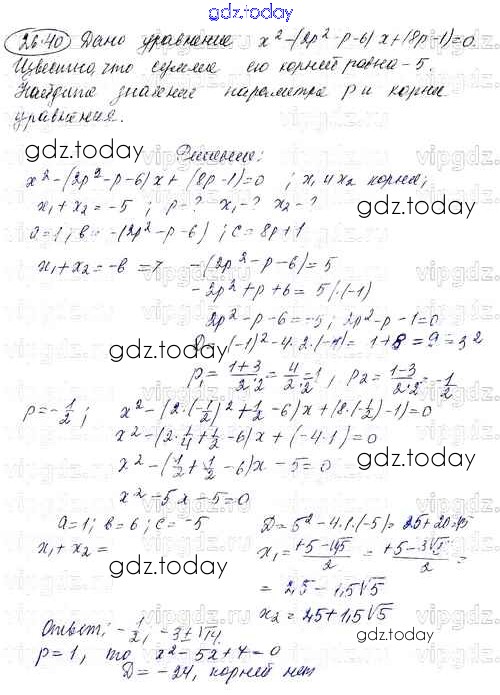 gdz.today
26.40 Дано уравнение x² - (2p² - p - 6)x + (8p - 1) = 0.
Известно, что сумма его корней равна - 5.
Найдите значение параметра p и корни
уравнения.
gdz.today
Решение:
x² - (2p² - p - 6)x + (8p - 1) = 0 ; x₁ и x₂ корни;
x₁ + x₂ = -5 ; p = ? x₁ - ? x₂ - ?
gdz.today
a = 1; в = -(2p² - p - 6) ; c = 8p + 1
x₁ + x₂ = -в = > -(2p² - p - 6) = 5
gdz.today
-2p² + p + 6 = 5 | · (-1)
2p² - p - 6 = -5 ; 2p² - p - 1 = 0
gdz.today
D = (-1)² - 4 · 2 · (-1) = 1 + 8 = 9 = 3²
p₁ = (1+3)/(2·2) = 4/(2·2) = 1, p₂ = (1-3)/(2·2) = -1/2
p = -1/2 ; x² - (2 · (-1/2)² + 1/2 - 6)x + (8 · (-1/2) - 1) = 0
gdz.today
x² - (2 · 1/4 + 1/2 - 6)x + (-4 · 1) = 0
x² - (1/2 + 1/2 - 6)x - 5 = 0
gdz.today
x² - 5x - 5 = 0
a = 1; в = 6; c = -5 D = 5² - 4 · 1 · (-5) = 25 + 20 = 45
x₁ + x₂ = x₁ = (+5 - √45)/2 = (+5 - 3√5)/2 =
gdz.today
= 2,5 - 1,5√5
x₂ = 2,5 + 1,5√5
Ответ: -1/2, -3 ± √14.
gdz.today
p = 1, то x² - 5x + 7 = 0
D = -24, корней нет